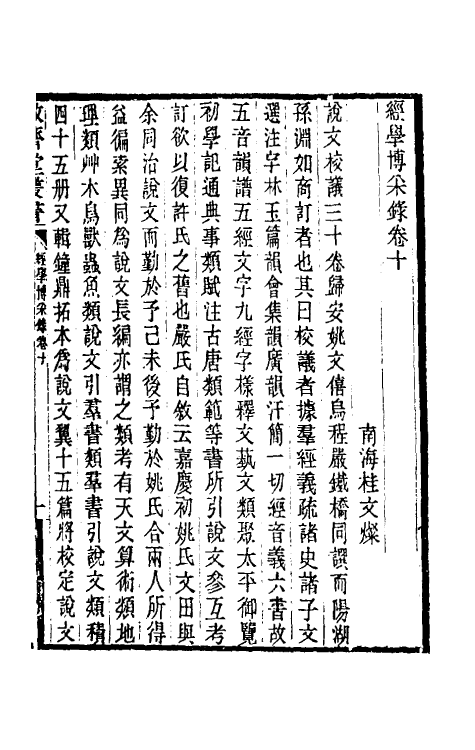 經學博采錄卷十
南海桂文燦
說文校議三十卷歸安姚文僖烏程嚴鐵橋同譔而陽湖
孫淵如商訂者也其曰校議者據羣經義疏諸史諸子文
選注字林玉篇韻會集韻廣韻汗簡一切經音義六書故
五音韻譜五經文字九經字樣釋文藝文類聚太平御覽
初學記通典事類賦注古唐類範等書所引說文參互考
訂欲以復許氏之舊也嚴氏自敘云嘉慶初姚氏文田與
余同治說文而勤於予己未後予勤於姚氏合兩人所得
益徧索異同爲說文長編亦謂之類考有天文算術類地
理類艸木鳥獸蟲魚類說文引羣書類羣書引說文類積
四十五册又輯鐘鼎拓本爲說文翼十五篇將校定說文
敬躋堂叢書
經學博采錄卷十